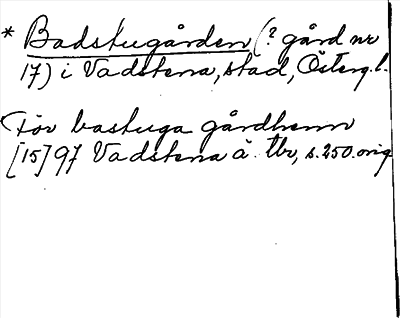 * Badstugården (? gård nr
17) i Vadstena, stad, Österg.l.
För bastuga gårdhenn
[15]97 Vadstena ä. tbr, s.250.orig